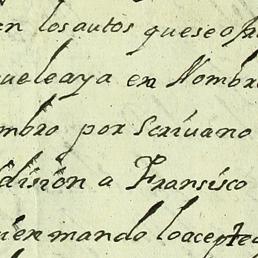 en los autos que se ofr
uele aya en Nombr
ombro por Scriuano
disiòn a Fransisco
uien mando lo acepte